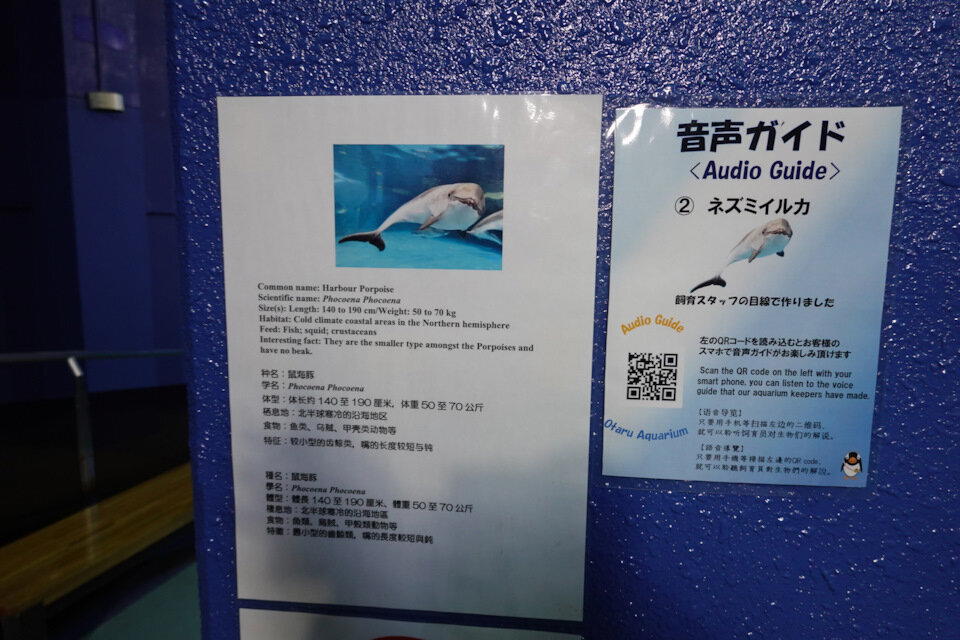 Common name: Harbour Porpoise
Scientific name: Phocoena Phocoena
Size(s): Length: 140 to 190 cm/Weight: 50 to 70 kg
Habitat: Cold climate coastal areas in the Northern hemisphere
Feed: Fish; squid; crustaceans
Interesting fact: They are the smaller type amongst the Porpoises and
have no beak.
种名：鼠海豚
学名：Phocoena Phocoena
体型：体长约140至190厘米，体重50至70公斤
栖息地：北半球寒冷的沿海地区
食物：鱼类、乌贼、甲壳类动物等
特征：较小型的齿鲸类，嘴的长度较短与钝
種名：鼠海豚
學名：Phocoena Phocoena
體型：體長140至190厘米、體重50至70公斤
棲息地：北半球寒冷的沿海地區
食物：魚類、烏賊、甲殼類動物等
特徵：小型的齒鯨類，嘴的長度較短與鈍
音声ガイド
<Audio Guide>
② ネズミイルカ
飼育スタッフの目線で作りました
Audio Guide
左のQRコードを読み込むとお客様の
スマホで音声ガイドがお楽しみ頂けます
Scan the QR code on the left with your
smart phone, you can listen to the voice
guide that our aquarium keepers have made.
Otaru Aquarium
【语音导览】
只要用手机等扫描左边的二维码，
就可以聆听饲育员对生物们的解说。
【語音導覽】
只要用手機等掃描左邊的QR code,
就可以聆聽飼育員對生物們的解說。